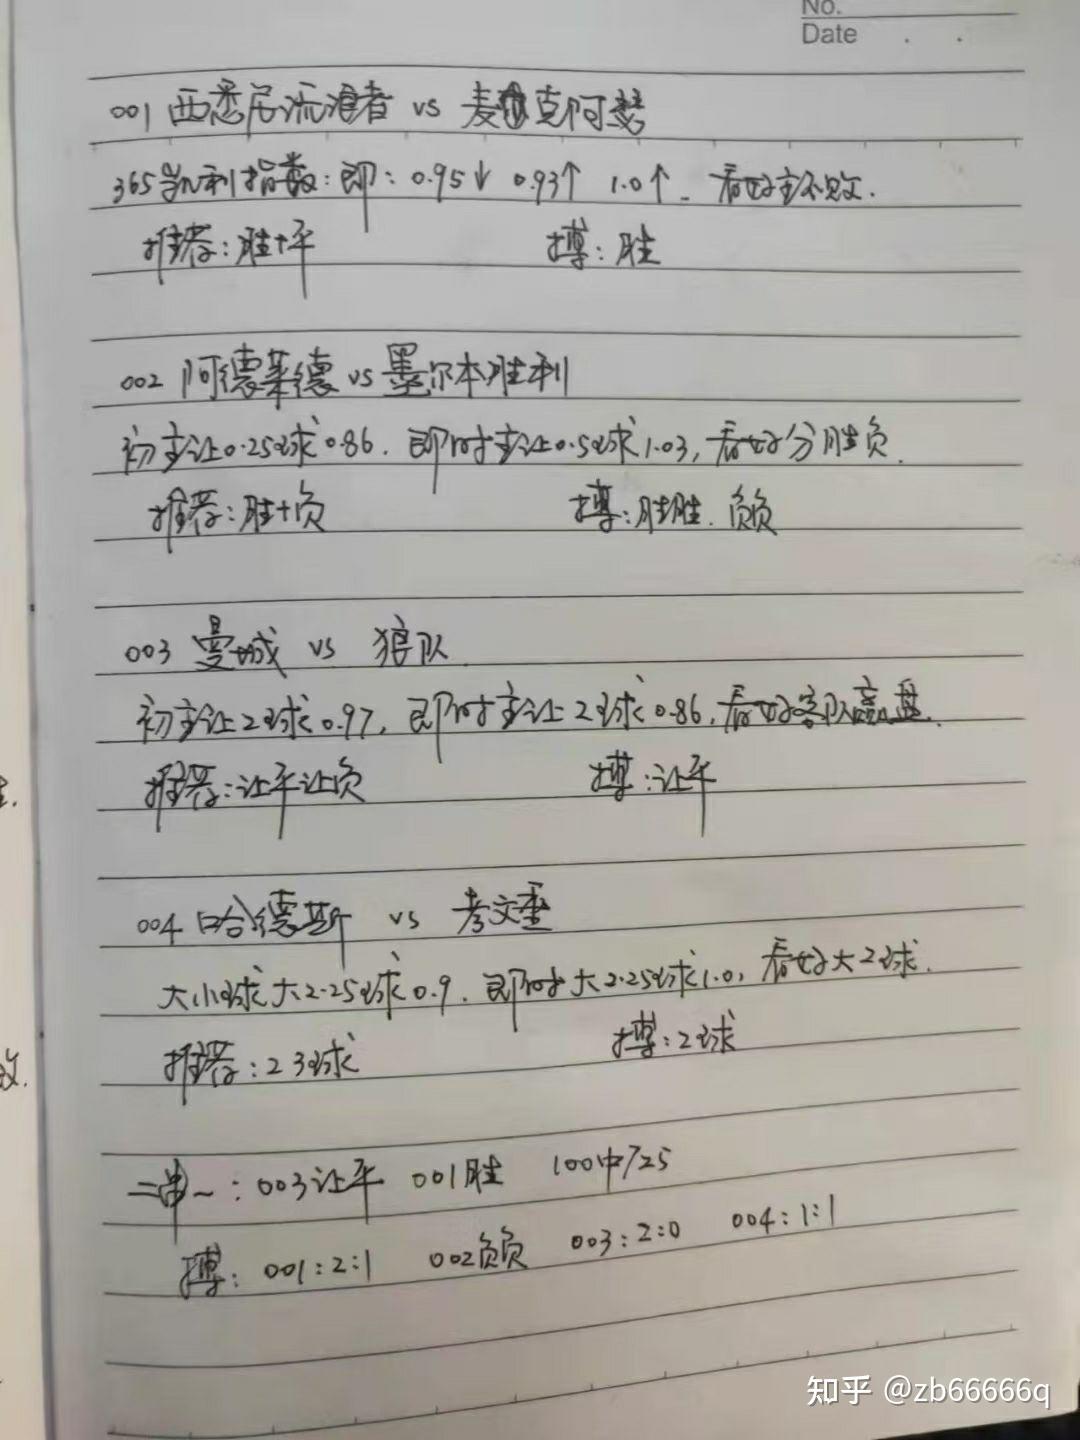 No.
Date . .
001 西悉尼流浪者 vs 麦克阿瑟
365凯利指数:即:0.95↓ 0.93↑ 1.0↑ 看好主不败.
推荐:胜+平 搏:胜
002 阿德莱德 vs 墨尔本胜利
初主让0.25球0.86. 即时主让0.5球1.03,看好分胜负.
推荐:胜+负 搏:胜胜. 负负
003 曼城 vs 狼队
初主让2球0.97, 即时主让2球0.86,看好客队赢盘.
推荐:让平让负 搏:让平
004 哈德斯 vs 考文垂
大小球大2.25球0.9. 即时大2.25球1.0, 看好大2球.
推荐:2 3球 搏:2球
败.
二串一:003让平 001胜 100中725
搏: 001:2:1 002负负 003:2:0 004:1:1
知乎 @zb66666q